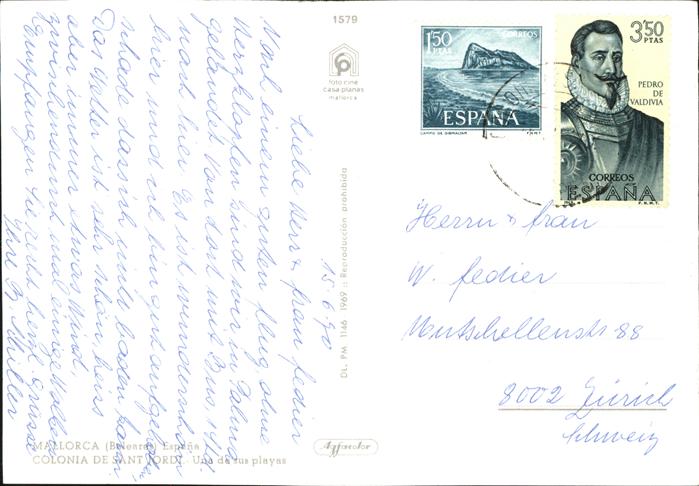 1579
foto cine
casa planas
mallorca
1'50
PTAS
CORREOS
ESPAÑA
CAMPO DE GIBRALTAR
F.N.M.T.
3'50
PTAS
PEDRO
DE
VALDIVIA
CORREOS
ESPAÑA
F.N.M.T.
15.6.70
Liebe Herr & Frau Fedier
Nach einem guten Flug, ohne
Herzklopfen sind wir in Palma
gelandet von dort mit Bus, 1 Std.
nach hier. Es ist wunderschön
hier und ich bin gut aufgehoben
schade dass ich nicht baden kann.
Das Wetter ist sehr schön, heiss
aber immer etwas Wind,
zwischendurch mal einige Wolken
Empfangen Sie recht herzl. Grüsse
Ihre B. Müller
DL. PM 1146 1969 :: Reproducción prohibida
Herrn & Frau
W. Fedier
Mutschellenstr 88
8002 Zürich
Schweiz
MALLORCA (Baleares) España
COLONIA DE SANT JORDI - Una de sus playas
Agfacolor